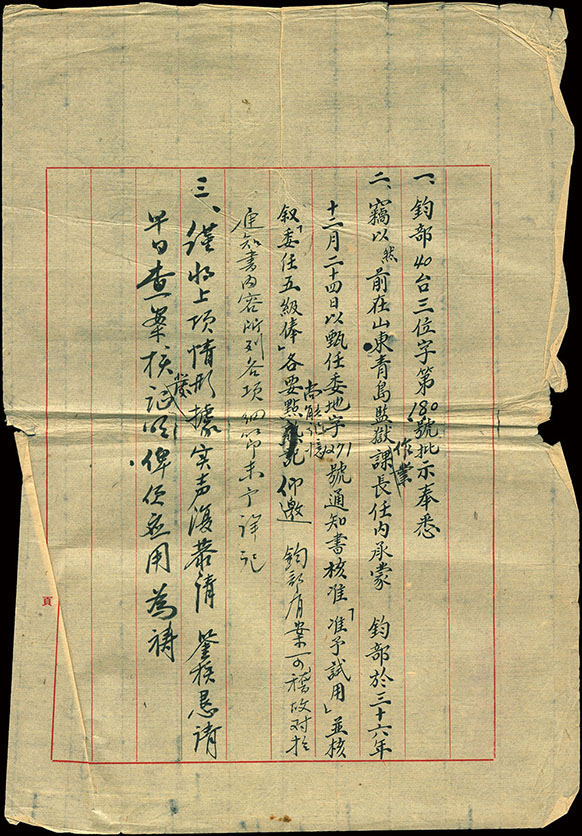 一、鈞部40台三位字第180號批示奉悉
二、竊以然前在山東青島監獄作業課長任内承蒙 鈞部於三十六年
十二月二十四日以甄任委地字271號通知書核准「准予試用」並核
叙「委任五級俸」各要點尚能記憶仰邀 鈞部有案可稽故对於
通知書内容所列各項細節未予詳記
三、僅將上項情形據实声復恭請 鉴核恳請
早日查案核發證明俾便应用為禱
頁